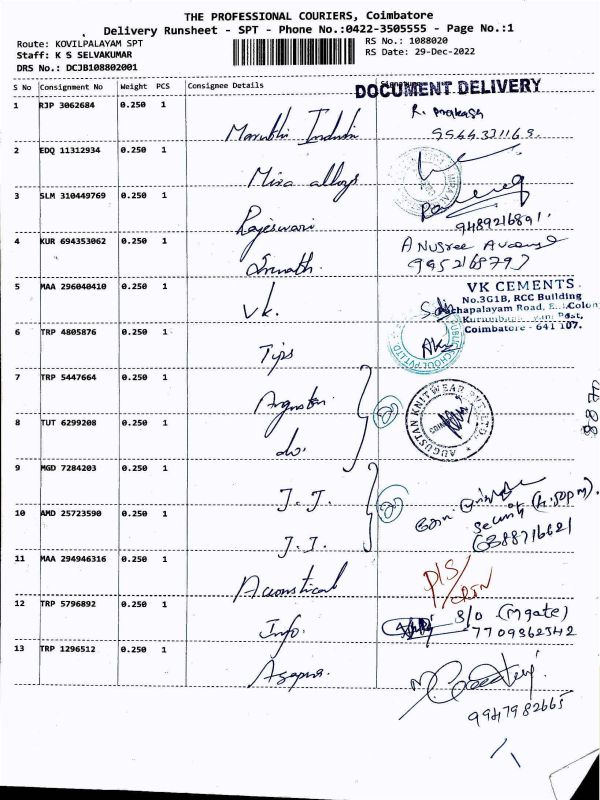 THE PROFESSIONAL COURIERS, Coimbatore
Delivery Runsheet - SPT - Phone No.:0422-3505555 - Page No.:1
Route: KOVILPALAYAM SPT
RS No.: 1088020
Staff: K S SELVAKUMAR
RS Date: 29-Dec-2022
DRS No.: DCJB108802001
S No Consignment No Weight PCS Consignee Details
DOCUMENT DELIVERY
1 RJP 3062684 0.250 1
R. Prakash
2 EDQ 11312934 0.250 1 Mira alloys
3 SLM 310449769 0.250 1 Rajeswari
9489216891
4 KUR 694353062 0.250 1 Srinath.
Anusree Avenue
9952168793
5 MAA 296040410 0.250 1 VK.
VK CEMENTS
No.3G1B, RCC Building
Coimbatore - 641 107.
6 TRP 4805876 0.250 1 Tips
7 TRP 5447664 0.250 1 Augustan
AUGUSTAN KNITWEAR PVT. LTD.
8 TUT 6299208 0.250 1 do.
9 MGD 7284203 0.250 1 J.J.
10 AMD 25723590 0.250 1 J.J.
security (4.50pm).
6388716621
11 MAA 294946316 0.250 1 Accoustical
12 TRP 5796892 0.250 1 Info.
S/O (Mgate)
7709362342
13 TRP 1296512 0.250 1
9947982665